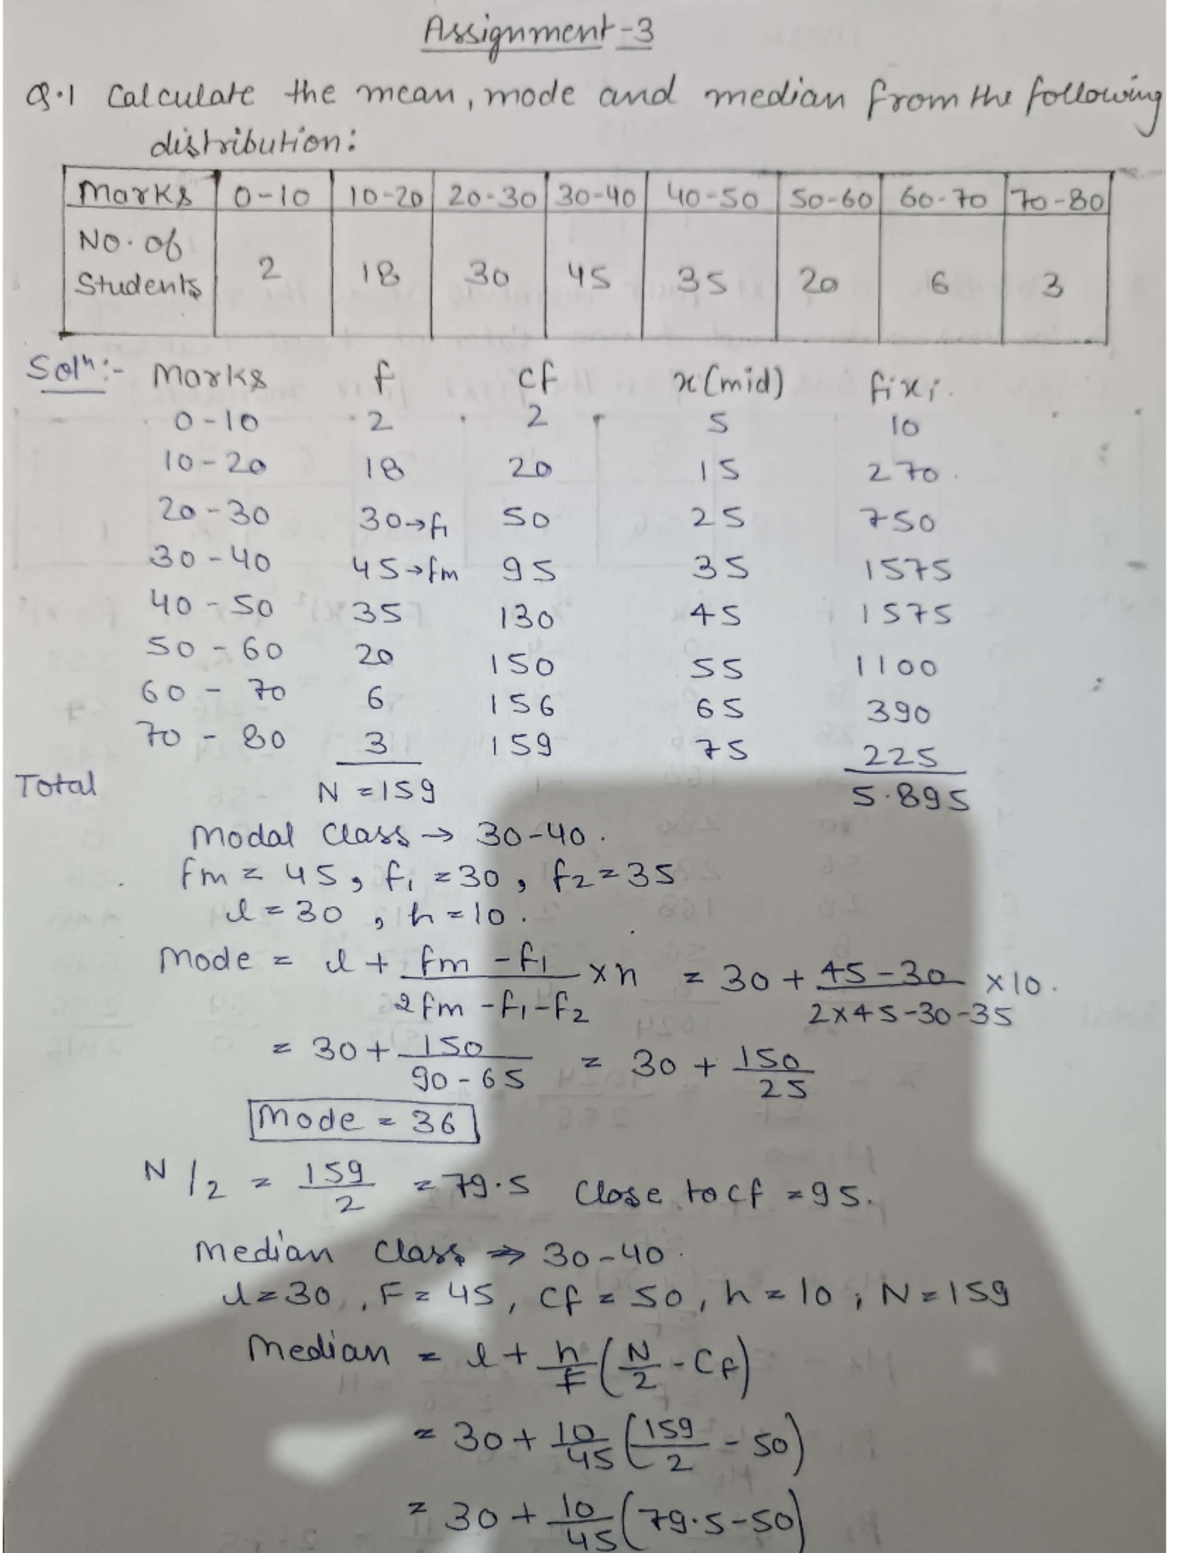 Assignment-3
Q.1 Calculate the mean, mode and median from the following
distribution:
Marks 0-10 10-20 20-30 30-40 40-50 50-60 60-70 70-80
No. of
Students 2 18 30 45 35 20 6 3
Solⁿ:- Marks f cf x(mid) fixi
0-10 2 2 5 10
10-20 18 20 15 270
20-30 30→f1 50 25 750
30-40 45→fm 95 35 1575
40-50 35 130 45 1575
50-60 20 150 55 1100
60-70 6 156 65 390
70-80 3 159 75 225
Total N=159 5.895
Modal Class → 30-40.
fm = 45, f1 = 30, f2 = 35
l = 30, h = 10.
Mode = l + (fm - f1)/(2fm - f1 - f2) × h = 30 + (45-30)/(2×45-30-35) × 10.
= 30 + 150/(90-65) = 30 + 150/25
Mode = 36
N/2 = 159/2 = 79.5 Close to cf = 95.
Median Class ⇒ 30-40.
l=30, F = 45, Cf = 50, h = 10, N = 159
Median = l + h/F (N/2 - Cf)
= 30 + 10/45 (159/2 - 50)
= 30 + 10/45 (79.5-50)